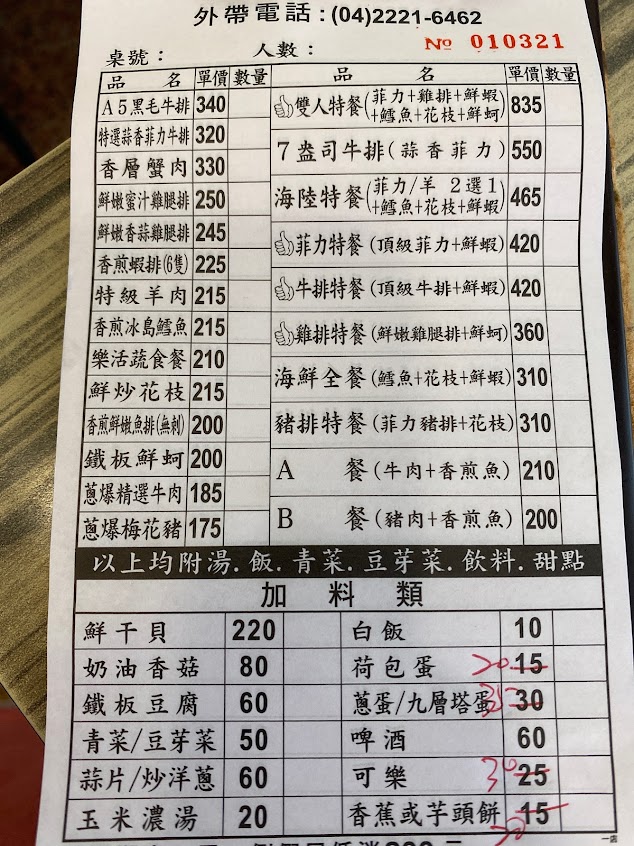 外帶電話:(04)2221-6462
桌號: 人數: № 010321
品名 單價 數量
A5黑毛牛排 340
特選蒜香菲力牛排 320
香層蟹肉 330
鮮嫩蜜汁雞腿排 250
鮮嫩香蒜雞腿排 245
香煎蝦排(6隻) 225
特級羊肉 215
香煎冰島鱈魚 215
樂活蔬食餐 210
鮮炒花枝 215
香煎鮮嫩魚排(無刺) 200
鐵板鮮蚵 200
蔥爆精選牛肉 185
蔥爆梅花豬 175
品名 單價 數量
雙人特餐(菲力+雞排+鮮蝦 835
+鱈魚+花枝+鮮蚵)
7盎司牛排(蒜香菲力) 550
海陸特餐(菲力/羊 2選1 465
+鱈魚+花枝+鮮蝦)
菲力特餐(頂級菲力+鮮蝦) 420
牛排特餐(頂級牛排+鮮蝦) 420
雞排特餐(鮮嫩雞腿排+鮮蚵) 360
海鮮全餐(鱈魚+花枝+鮮蝦) 310
豬排特餐(菲力豬排+花枝) 310
A 餐(牛肉+香煎魚) 210
B 餐(豬肉+香煎魚) 200
以上均附湯.飯.青菜.豆芽菜.飲料.甜點
加料類
鮮干貝 220
奶油香菇 80
鐵板豆腐 60
青菜/豆芽菜 50
蒜片/炒洋蔥 60
玉米濃湯 20
白飯 10
荷包蛋 20 15
蔥蛋/九層塔蛋 35 30
啤酒 60
可樂 30 25
香蕉或芋頭餅 15
20
一店